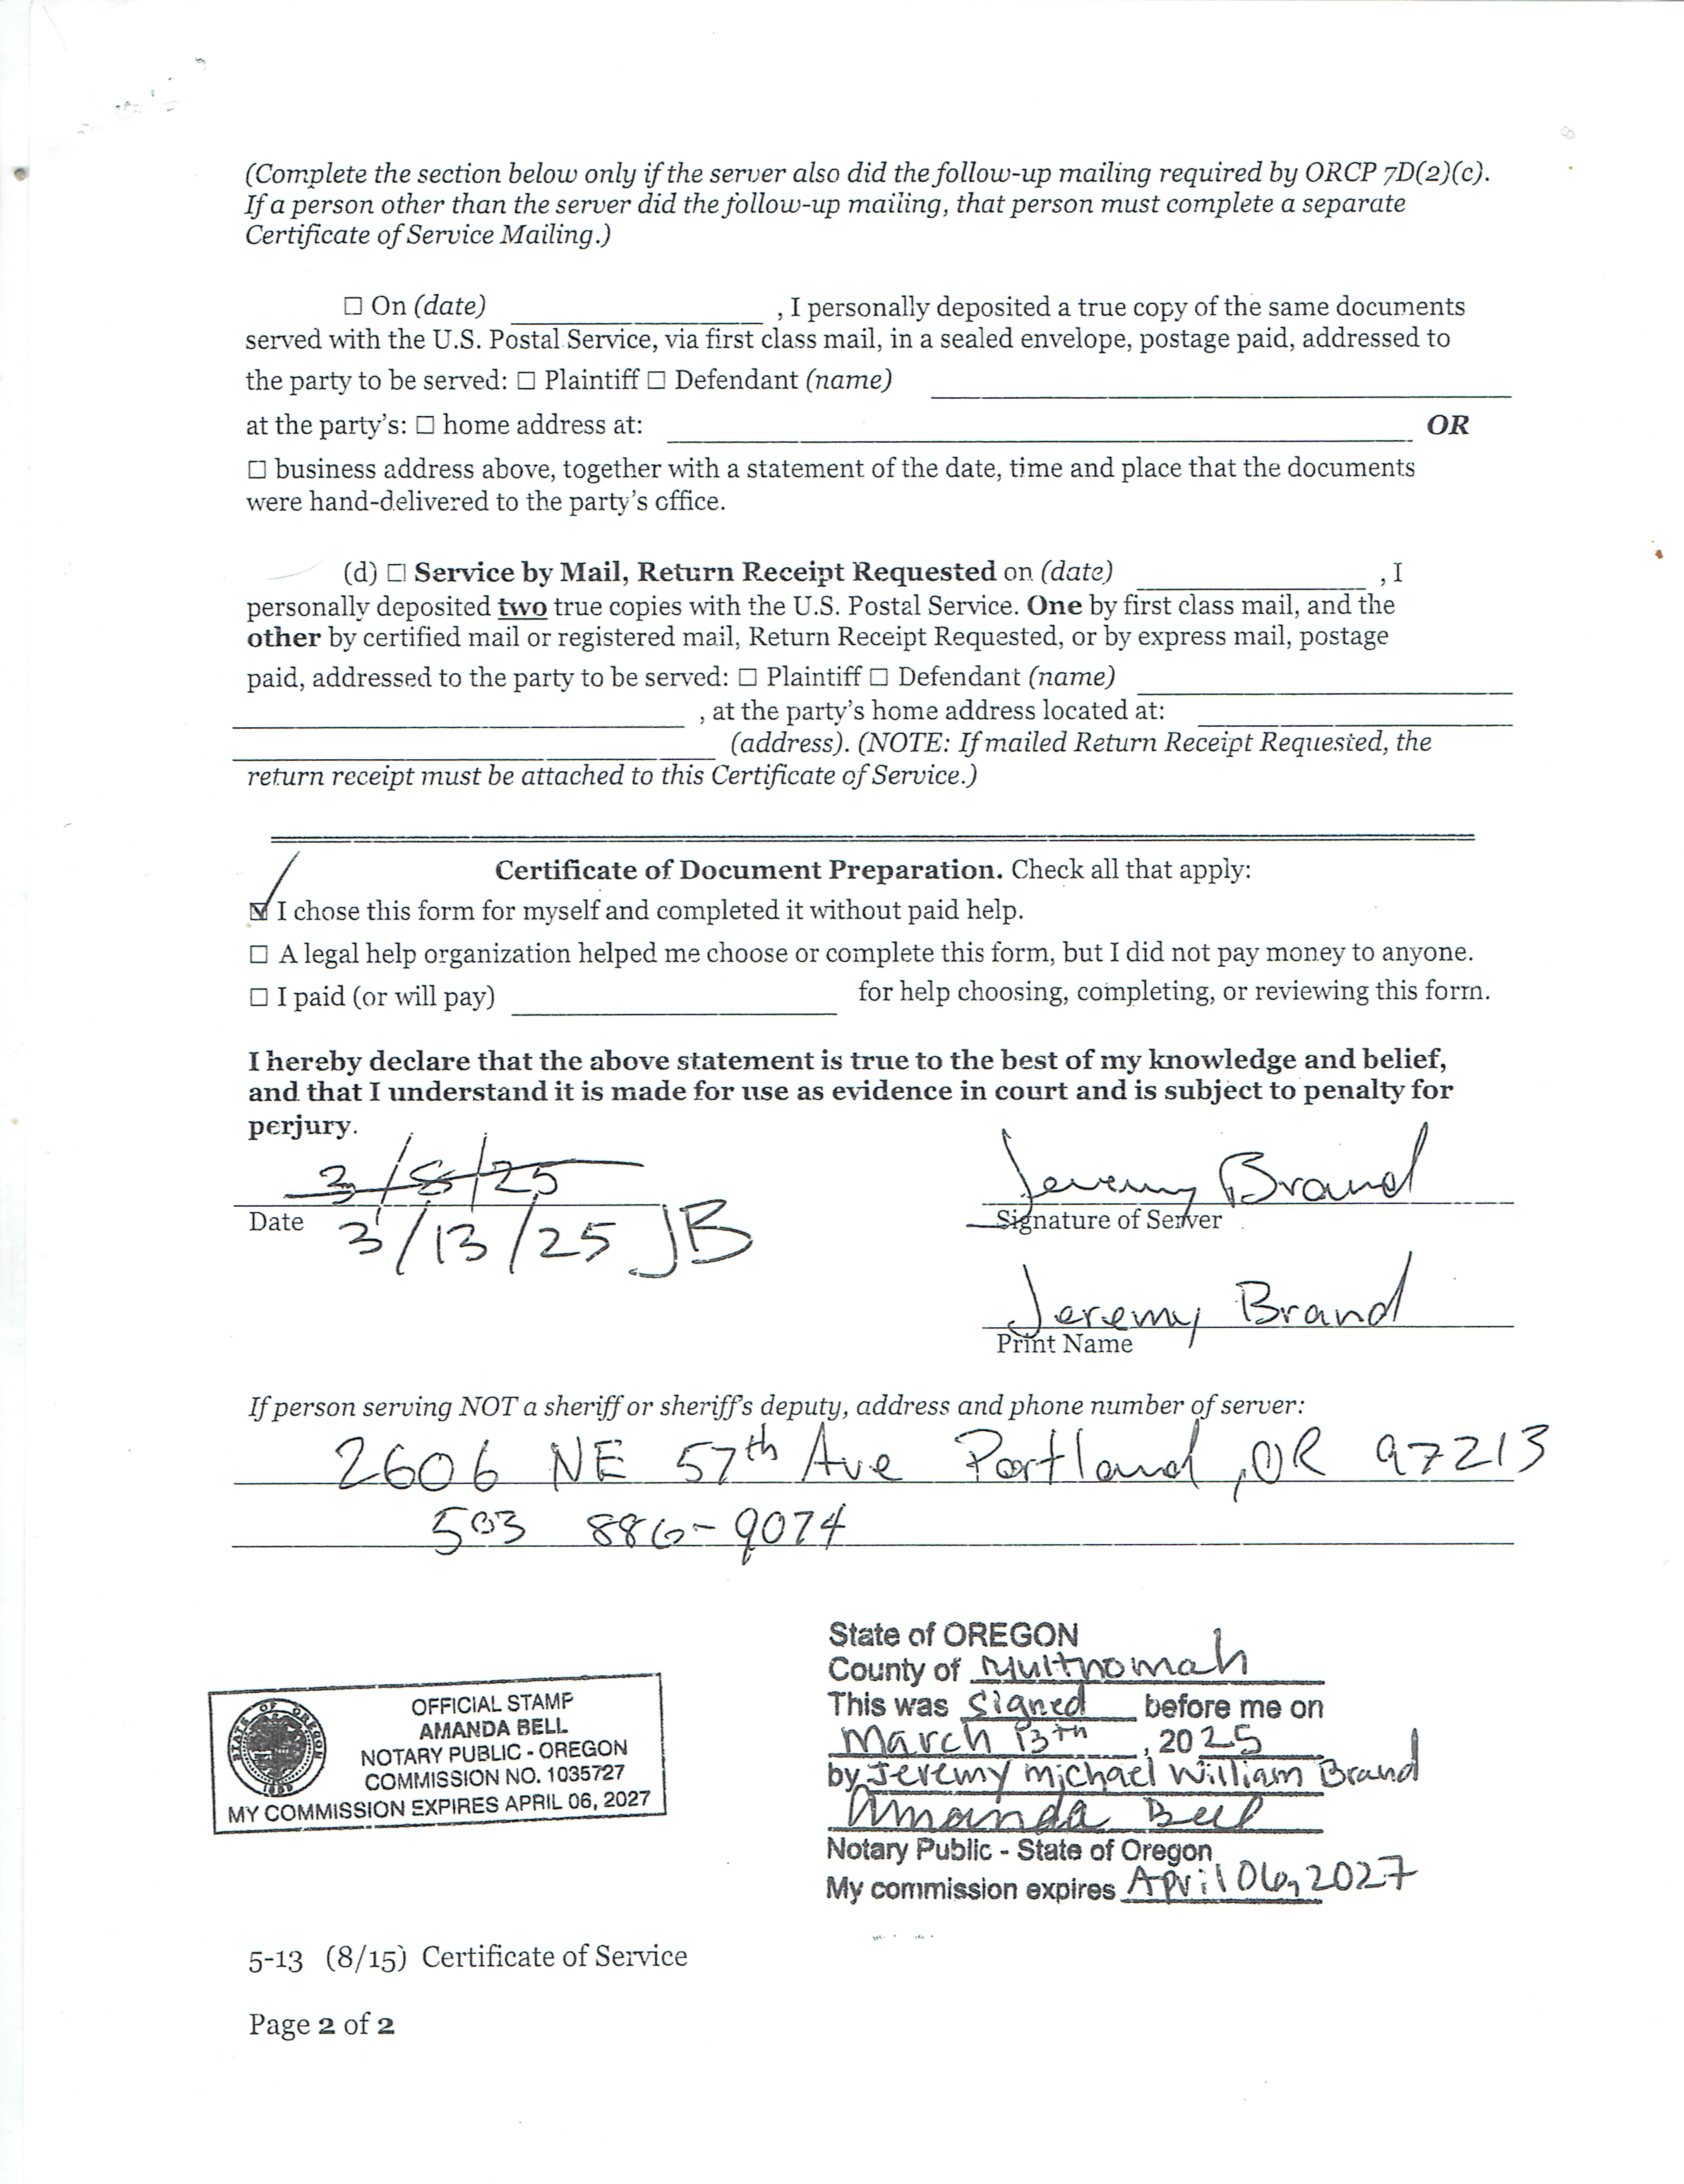 (Complete the section below only if the server also did the follow-up mailing required by ORCP 7D(2)(c).
If a person other than the server did the follow-up mailing, that person must complete a separate
Certificate of Service Mailing.)
☐ On (date) ____________ , I personally deposited a true copy of the same documents
served with the U.S. Postal Service, via first class mail, in a sealed envelope, postage paid, addressed to
the party to be served: ☐ Plaintiff ☐ Defendant (name) ____________
at the party's: ☐ home address at: ____________ OR
☐ business address above, together with a statement of the date, time and place that the documents
were hand-delivered to the party's office.
(d) ☐ Service by Mail, Return Receipt Requested on (date) ____________ , I
personally deposited two true copies with the U.S. Postal Service. One by first class mail, and the
other by certified mail or registered mail, Return Receipt Requested, or by express mail, postage
paid, addressed to the party to be served: ☐ Plaintiff ☐ Defendant (name) ____________
____________ , at the party's home address located at: ____________
____________ (address). (NOTE: If mailed Return Receipt Requested, the
return receipt must be attached to this Certificate of Service.)
Certificate of Document Preparation. Check all that apply:
☑ I chose this form for myself and completed it without paid help.
☐ A legal help organization helped me choose or complete this form, but I did not pay money to anyone.
☐ I paid (or will pay) ____________ for help choosing, completing, or reviewing this form.
I hereby declare that the above statement is true to the best of my knowledge and belief,
and that I understand it is made for use as evidence in court and is subject to penalty for
perjury.
3/8/25 Jeremy Brand
Date Signature of Server
3/13/25 JB
Jeremy Brand
Print Name
If person serving NOT a sheriff or sheriff's deputy, address and phone number of server:
2606 NE 57th Ave Portland, OR 97213
503 886-9074
OFFICIAL STAMP
AMANDA BELL
NOTARY PUBLIC - OREGON
COMMISSION NO. 1035727
MY COMMISSION EXPIRES APRIL 06, 2027
STATE OF OREGON
1859
State of OREGON
County of Multnomah
This was signed before me on
March 13th, 2025
by Jeremy Michael William Brand
Amanda Bell
Notary Public - State of Oregon
My commission expires April 06, 2027
5-13 (8/15) Certificate of Service
Page 2 of 2